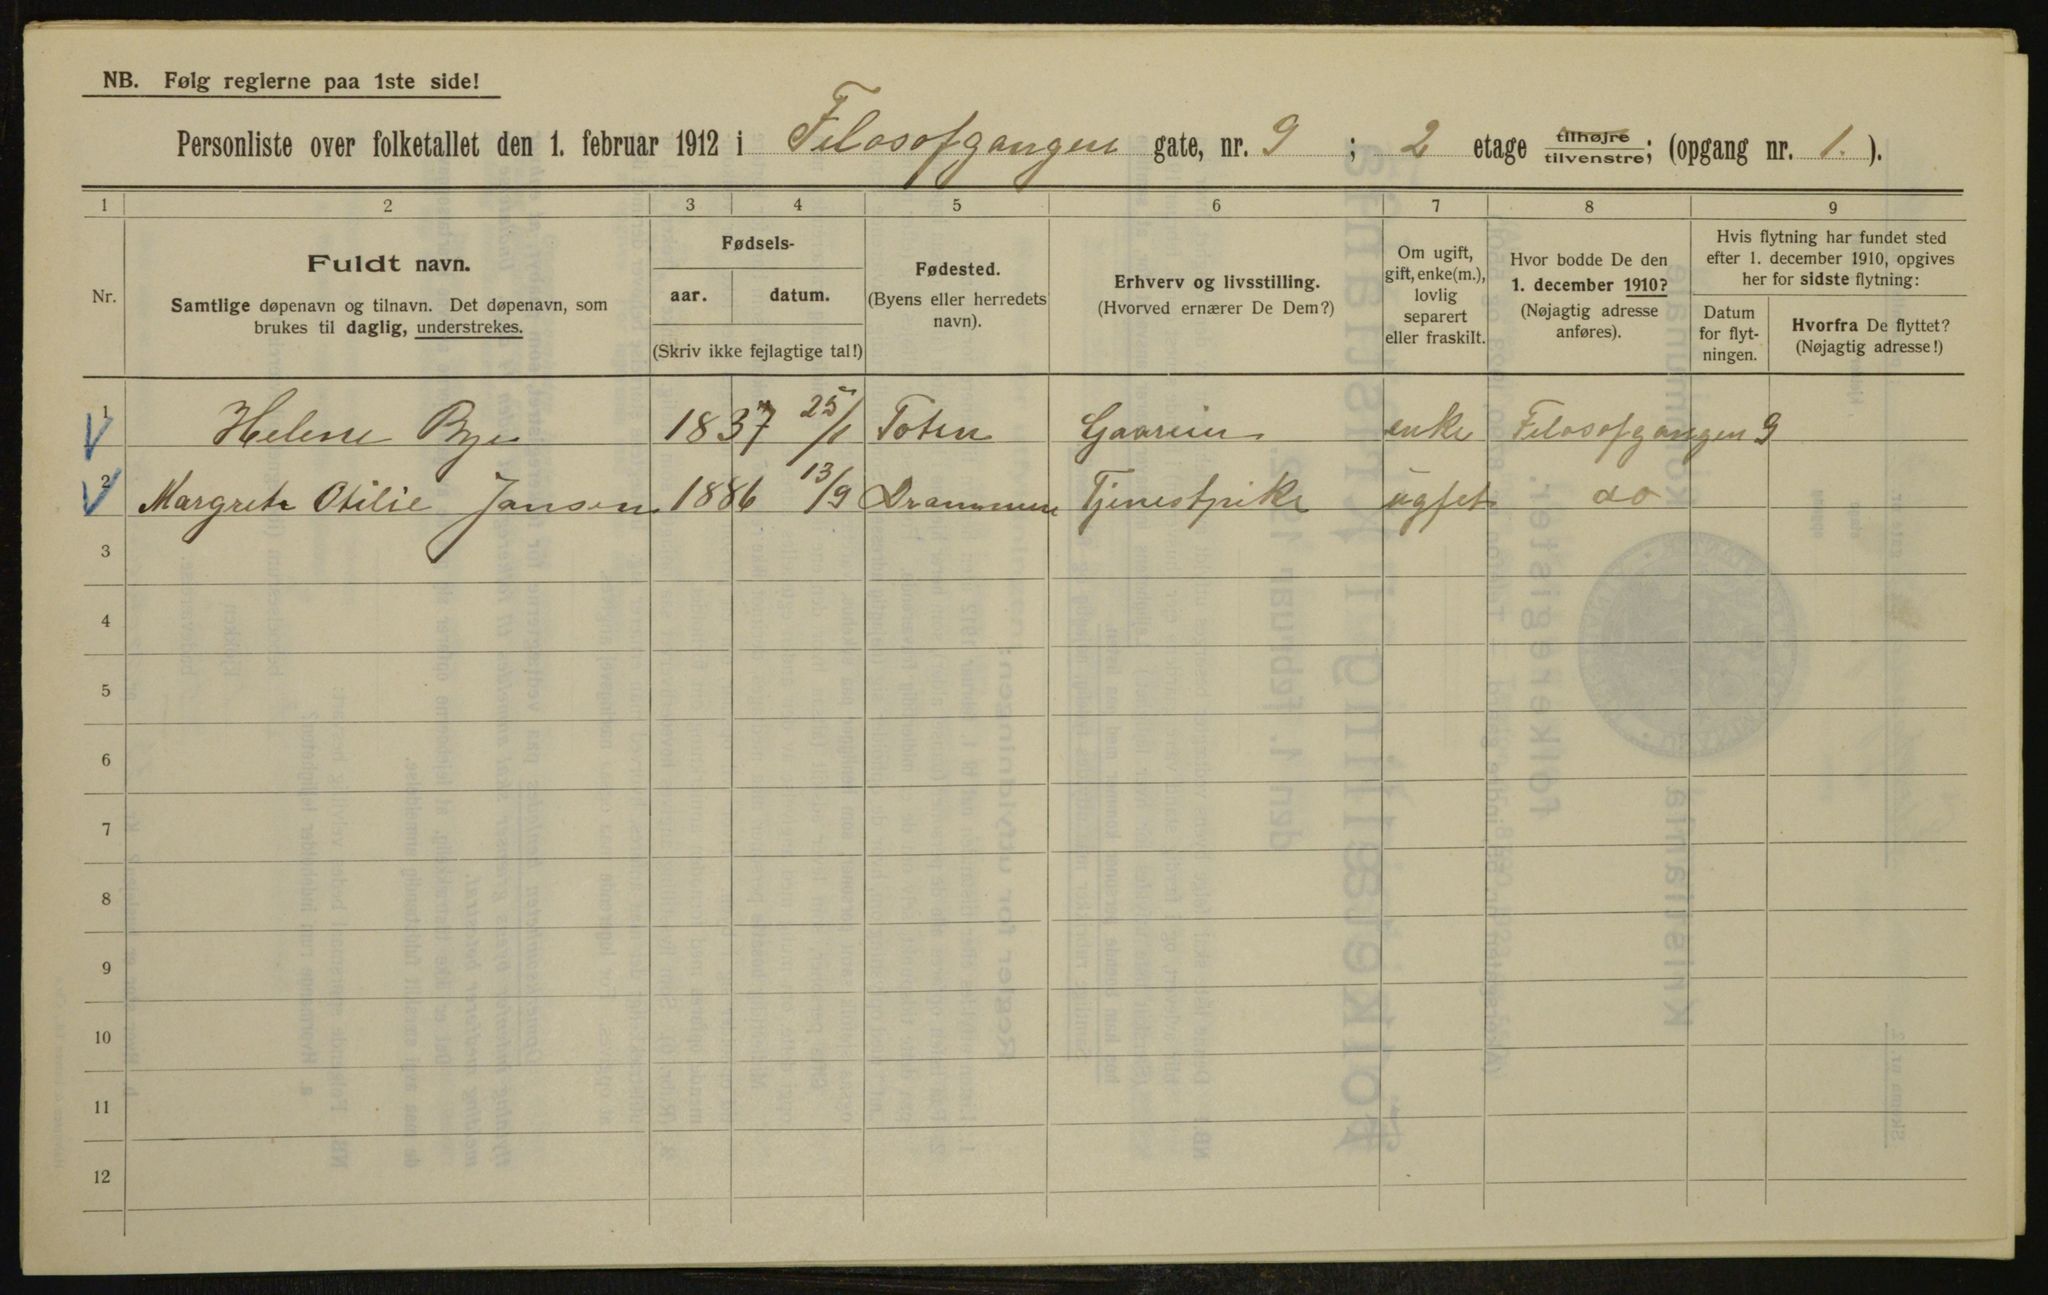 NB. Følg reglerne paa 1ste side!
Personliste over folketallet den 1. februar 1912 i Filosofgangen gate, nr. 9 ; 2 etage tilhøjre/tilvenstre; (opgang nr. 1. ).
1 2 3 4 5 6 7 8 9
Nr.
Fuldt navn.
Samtlige døpenavn og tilnavn. Det døpenavn, som
brukes til daglig, understrekes.
Fødsels-
aar. datum.
(Skriv ikke fejlagtige tal!)
Fødested.
(Byens eller herredets
navn).
Erhverv og livsstilling.
(Hvorved ernærer De Dem?)
Om ugift,
gift, enke(m.),
lovlig
separert
eller fraskilt.
Hvor bodde De den
1. december 1910?
(Nøjagtig adresse
anføres).
Hvis flytning har fundet sted
efter 1. december 1910, opgives
her for sidste flytning:
Datum
for flyt-
ningen.
Hvorfra De flyttet?
(Nøjagtig adresse!)
1 Helene Bye 1837 25/1 Toten enke Filosofgangen 9
2 Margrete Otilie Jansen 1886 13/9 Drammen Tjenestpike ugfet do
3
4
5
6
7
8
9
10
11
12